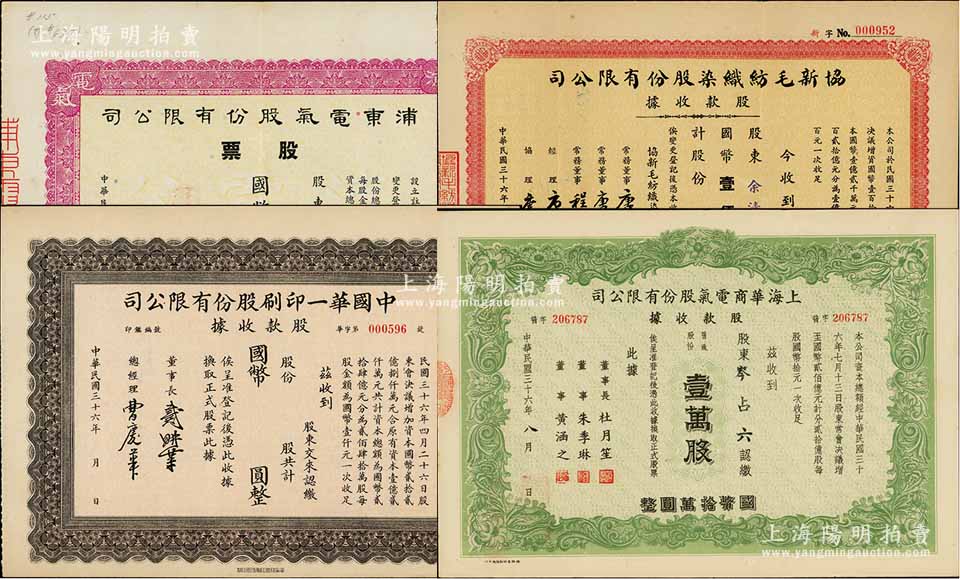 上海陽明拍賣
www.yangmingauction.com
浦東電氣股份有限公司
股票
中華民
國幣
股東
設立註
變更登
股份總
每股金
資本總
新字No. 000952
協新毛紡織染股份有限公司
股款收據
本公司於民國三十
決議增資國幣壹百
本國幣壹億貳千萬元
百貳拾億元分為壹億
百元一次收足
今收到
股東余
國幣壹
計股份
俟變更登記後憑本收
協新毛紡織染
常務董事 唐
常務董事 唐
經理
協理
中華民國三十六年
上海陽明拍賣
www.yangmingauction.com
中國華一印刷股份有限公司
股款收據
華字第 000596 號
印鑑編號
民國三十六年四月二十六日股
東會決議增加資本國幣貳拾貳
億捌仟萬元合原有資本壹億貳
仟萬元共計資本總額為國幣貳
拾肆億元分為貳佰肆拾萬股每
股金額為國幣壹仟元一次收足
茲收到
股東交來認繳
股份 股共計
國幣 圓整
俟呈准登記後憑此收據
換取正式股票此據
董事長
總經理
中華民國三十六年 月 日
上海華商電氣股份有限公司
股款收據
替字 206787
替字 206787
本公司資本總額經中華民國三十
六年七月十三日股東常會決議增
至國幣貳佰億元計分貳拾億股每
股國幣拾元一次收足
茲收到
股東 岑占六 認繳
股份 壹萬股
國幣拾萬圓整
俟呈准登記後憑此收據換取正式股票
此據
董事長 杜月笙
董事 朱季琳
董事 黃涵之
中華民國三十六年八月 日
上海陽明拍賣
www.yangmingauction.com
上海陽明拍賣
www.yangmingauction.com
上海陽明拍賣
www.yangmingauction.com